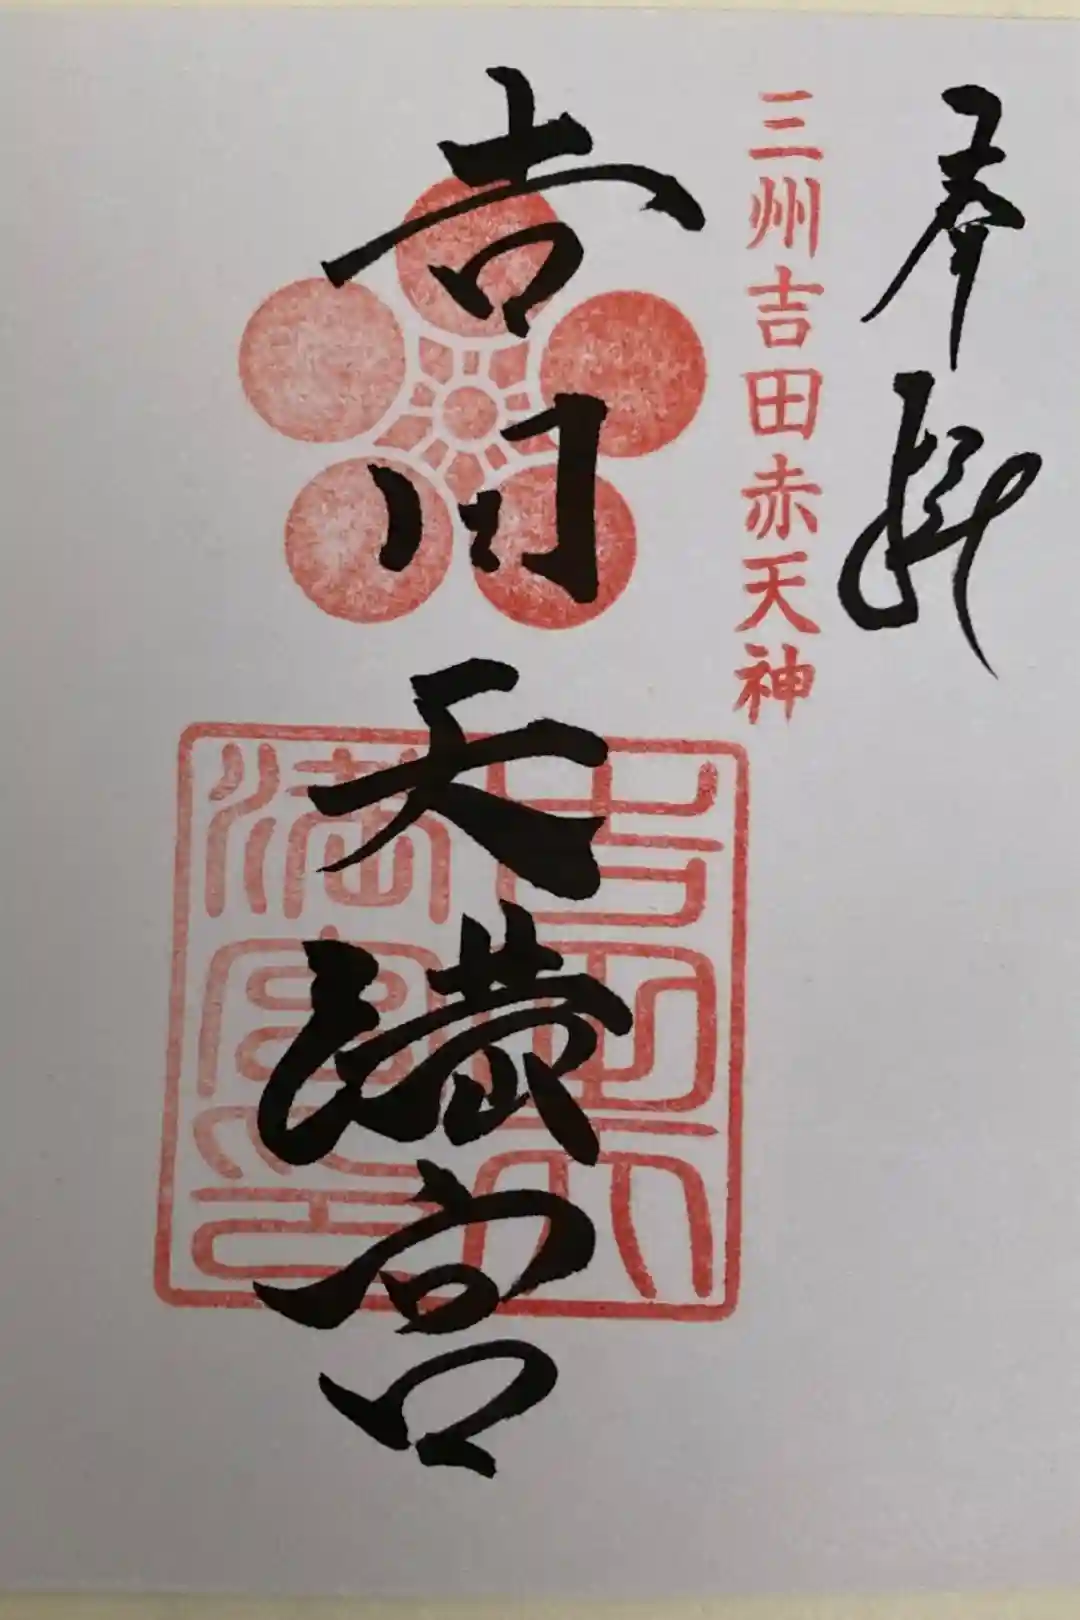 奉拝
三州吉田赤天神
吉田天満宮
吉田天
満宮印